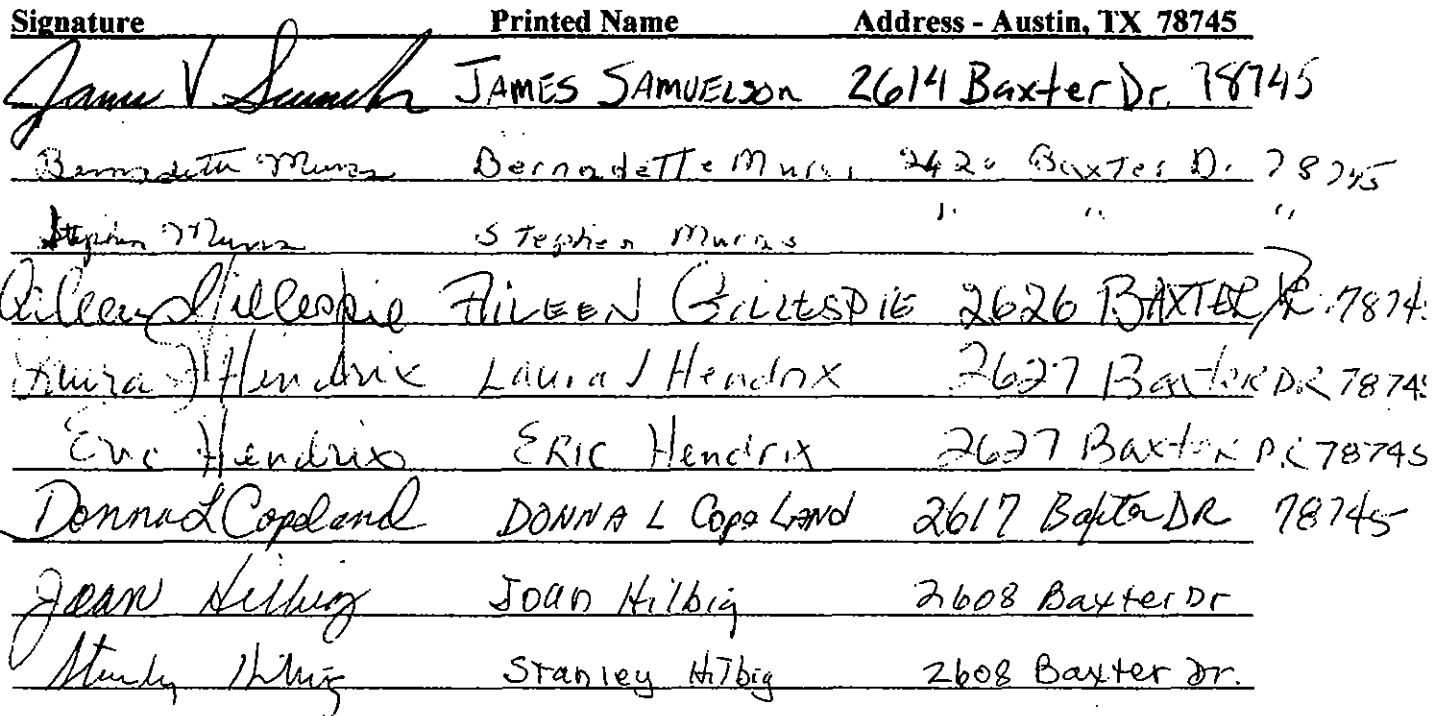 Signature Printed Name Address - Austin, TX 78745
James V JAMES SAMUELSON 2614 Baxter Dr. 78745
Bernadette Bernadette 2620 Baxter Dr 78745
Stephen Stephen " " "
Aileen Gillespie AILEEN GILLESPIE 2626 BAXTER DR 7874
Laura J Hendrix Laura J Hendrix 2627 Baxter DR 7874
Eric Hendrix ERIC Hendrix 2627 Baxter DR 78745
Donna L Copeland DONNA L CopeLAND 2617 Baxter DR 78745
Joan Hilbig Joan Hilbig 2608 Baxter Dr
Stanley Hilbig Stanley Hilbig 2608 Baxter Dr.